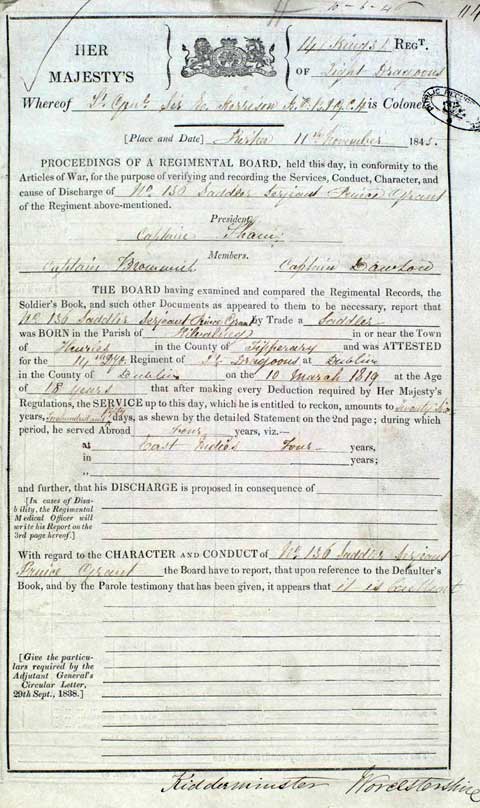 HER
MAJESTY'S
14 Kings Lt REGT.
OF Light Dragoons
Whereof Lt Genl Sir E. Kerrison is Colonel
[Place and Date] Kirkee 11th November 1845.
PROCEEDINGS OF A REGIMENTAL BOARD, held this day, in conformity to the
Articles of War, for the purpose of verifying and recording the Services, Conduct, Character, and
cause of Discharge of No 136 Saddler Serjeant Prince Grant
of the Regiment above-mentioned.
President,
Captain
Members.
Captain
Captain Dawson
THE BOARD having examined and compared the Regimental Records, the
Soldier's Book, and such other Documents as appeared to them to be necessary, report that
No 136 Saddler Serjeant Prince Grant by Trade a Saddler
was BORN in the Parish of in or near the Town
of in the County of Tipperary and was ATTESTED
for the Regiment of Lt Dragoons at Dublin
in the County of Dublin on the 10 March 1819 at the Age
of 18 years that after making every Deduction required by Her Majesty's
Regulations, the SERVICE up to this day, which he is entitled to reckon, amounts to twenty six
years, days, as shewn by the detailed Statement on the 2nd page; during which
period, he served Abroad Four years, viz.—
at East Indies Four years,
in years;
"
and further, that his DISCHARGE is proposed in consequence of
[In cases of Disa-
bility, the Regimental
Medical Officer will
write his Report on the
3rd page hereof.]
With regard to the CHARACTER AND CONDUCT of No 136 Saddler Serjeant
Prince Grant the Board have to report, that upon reference to the Defaulter's
Book, and by the Parole testimony that has been given, it appears that it is
[Give the particu-
lars required by the
Adjutant General's
Circular Letter,
29th Sept., 1838.]
Kidderminster Worcestershire